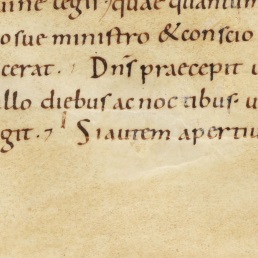 legis, quae quantum
osue ministro & conscio
cerat. Dns praecepit
llo diebus ac noctibus
git. Si autem apertu